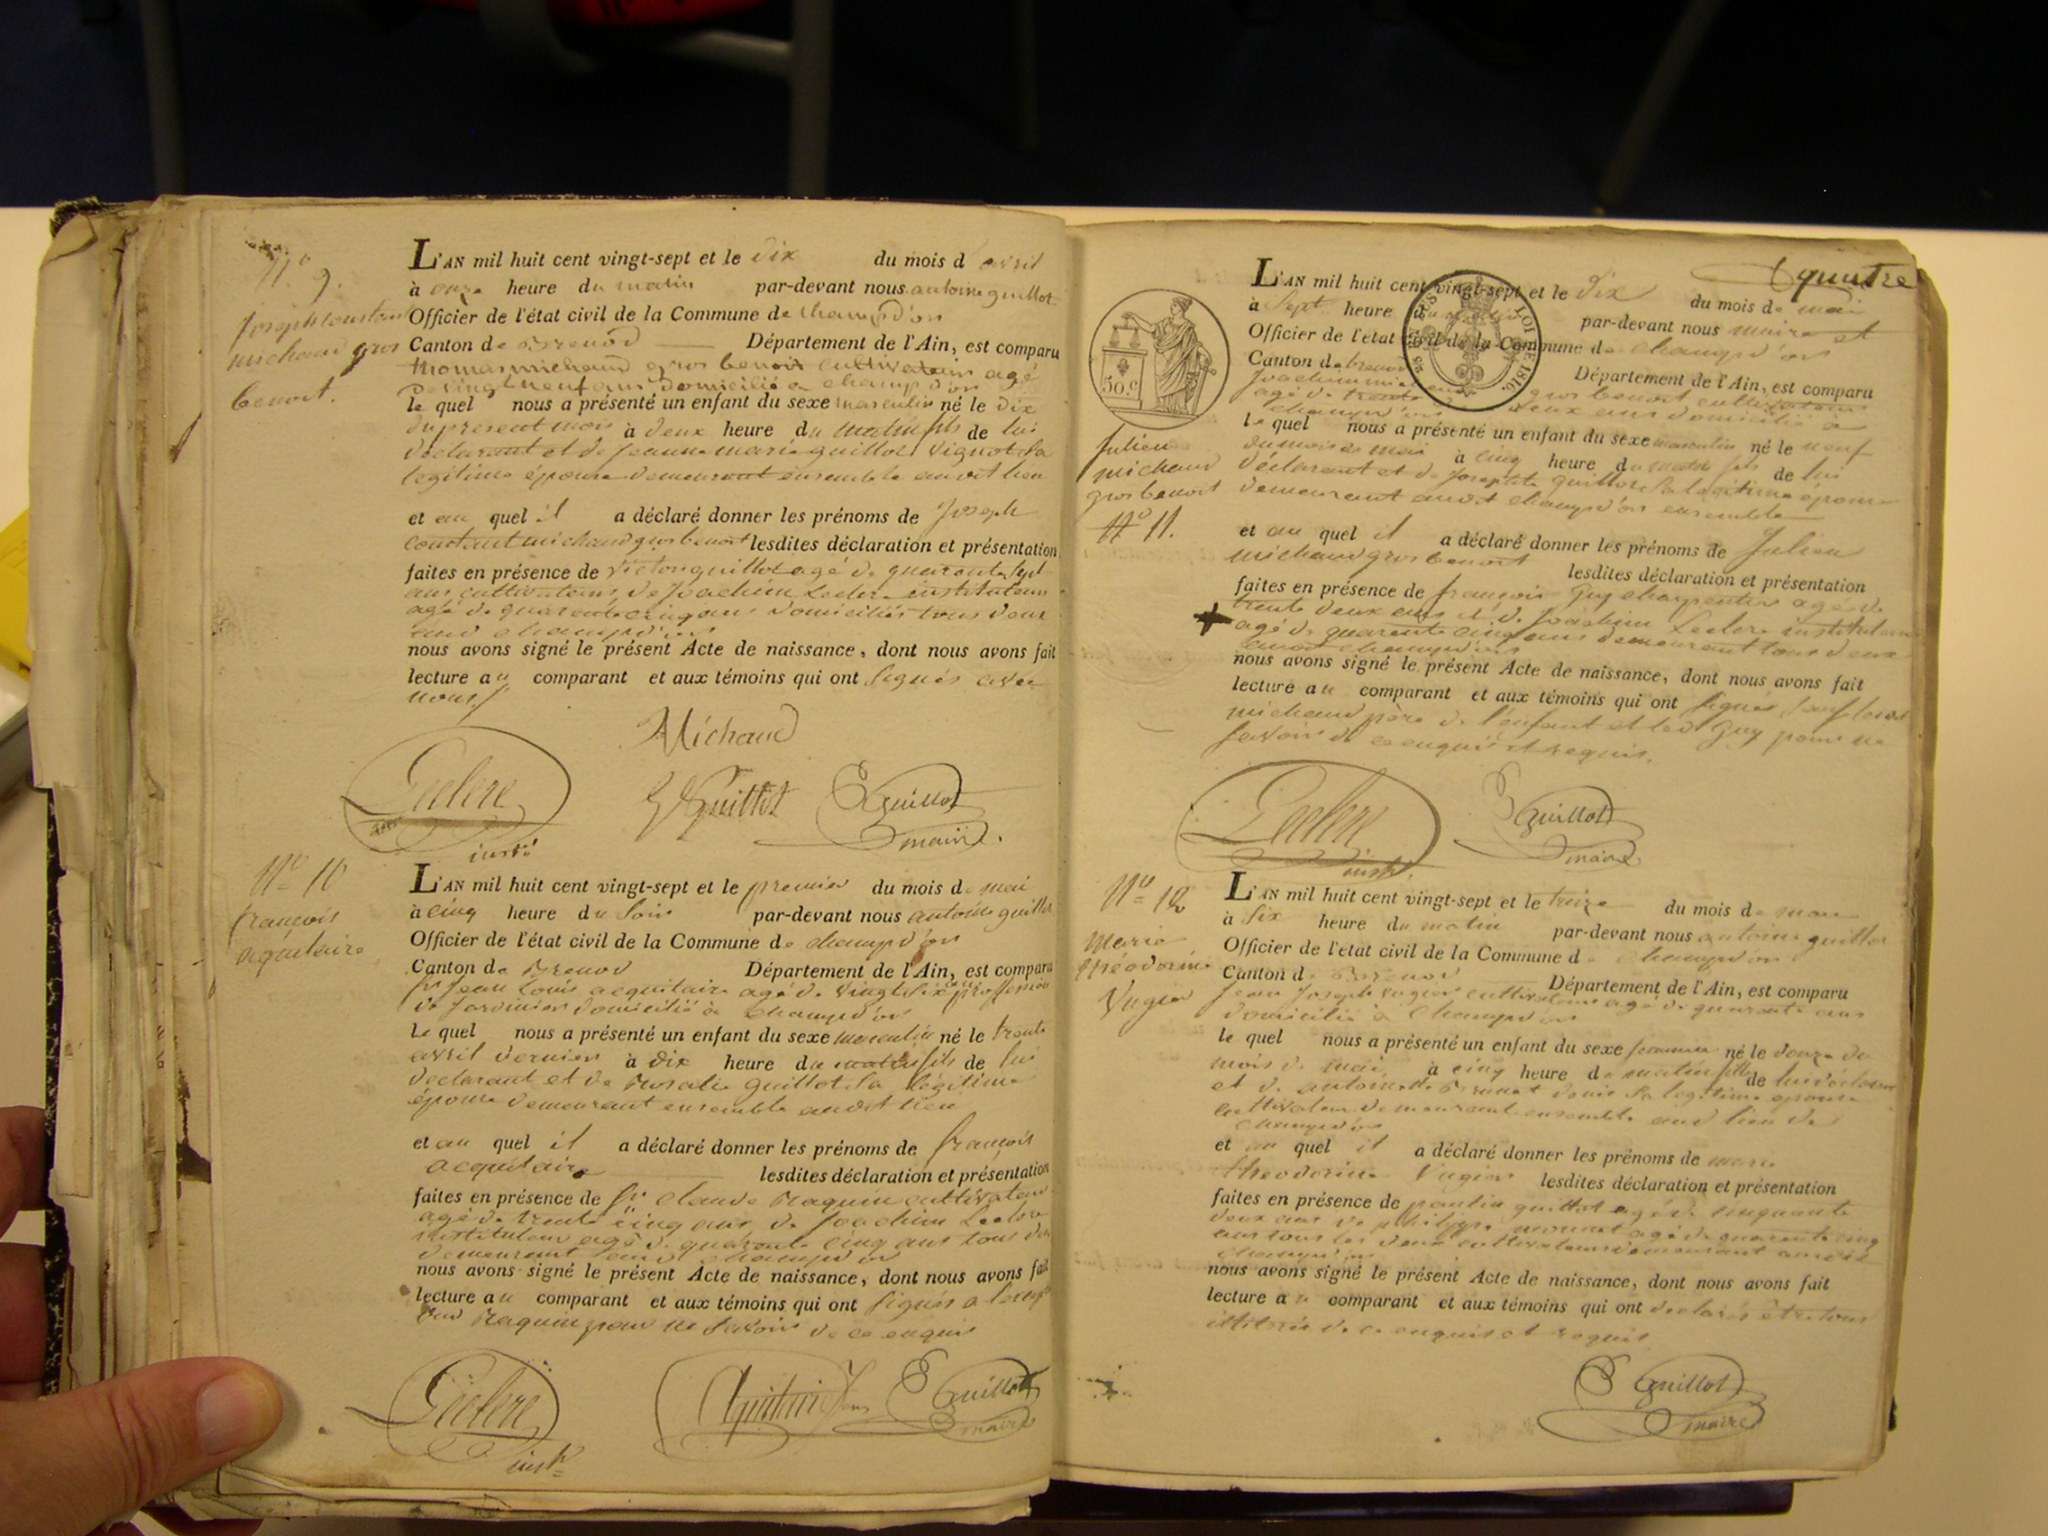 N.º 9.
Joseph constant
michaud gros
benoit.
L'AN mil huit cent vingt-sept et le dix du mois d avril
à onze heure du matin par-devant nous antoine guillot
Officier de l'état civil de la Commune de champd'or
Canton de Brenod Département de l'Ain, est comparu
thomas michaud gros benoit cultivateur agé
de vingt neuf ans domicilié a champ d'or
le quel nous a présenté un enfant du sexe masculin né le dix
du present mois à deux heure du matin fils de lui
déclarant et de Jeanne marie guillot vignot sa
legitime épouse demeurant ensemble audit lieu
et au quel il a déclaré donner les prénoms de Joseph
constant michaud gros benoit lesdites déclaration et présentation
faites en présence de victor guillot agé de quarante sept
ans cultivateur, de Joachim Leclerc instituteur
agé de quarante cinq ans domiciliés tous deux
aud champd'or
nous avons signé le présent Acte de naissance, dont nous avons fait
lecture au comparant et aux témoins qui ont signés avec
nous
Michaud
Leclerc
instr
Guillot
Guillot
maire.
Nº 10
françois
aquitaire
L'AN mil huit cent vingt-sept et le premier du mois de mai
à cinq heure du soir par-devant nous antoine guillot
Officier de l'état civil de la Commune de champd'or
Canton de Brenod Département de l'Ain, est comparu
sr Jean Louis acquitaire agé de vingt six ans profession
de Jardinier domicilié à champd'or
Le quel nous a présenté un enfant du sexe masculin né le trente
avril dernier à dix heure du matin fils de lui
declarant et de Rosalie guillot sa légitime
épouse demeurant ensemble audit lieu
et au quel il a déclaré donner les prénoms de françois
acquitaire lesdites déclaration et présentation
faites en présence de sr claude Raquin cultivateur
agé de trente cinq ans, de Joachim Leclerc
instituteur agé de quarante cinq ans tous deux
demeurant aud champd'or
nous avons signé le présent Acte de naissance, dont nous avons fait
lecture au comparant et aux témoins qui ont signés a l'exception
dud Raquin pour ne savoir de ce enquis
Leclerc
instr
Guillot
maire
quatre
50 c.
LOI DE 1816.
Julien
michaud
gros benoit
Nº 11.
L'AN mil huit cent vingt-sept et le dix du mois de mai
à sept heure du par-devant nous maire et
Officier de l'état civil de la Commune de champd'or
Canton de brenod Département de l'Ain, est comparu
Joachim michaud gros benoit cultivateur
agé de trente deux ans domicilié à
champd'or
le quel nous a présenté un enfant du sexe masculin né le neuf
du mois de mai à cinq heure du matin fils de lui
déclarant et de Josephte guillot sa légitime épouse
demeurant audit champd'or ensemble
et au quel il a déclaré donner les prénoms de Julien
michaud gros benoit lesdites déclaration et présentation
faites en présence de françois Guy charpentier agé de
trente deux ans et de Joachim Leclerc instituteur
agé de quarante cinq ans demeurant tous deux
audit champd'or
nous avons signé le présent Acte de naissance, dont nous avons fait
lecture au comparant et aux témoins qui ont signés sauf led
michaud père de l'enfant et led Guy pour ne
savoir de ce enquis et requis.
Leclerc
instr.
Guillot
maire
Nº 12
Marie
théodorine
Vugier
L'AN mil huit cent vingt-sept et le treize du mois de mai
à six heure du matin par-devant nous antoine guillot
Officier de l'état civil de la Commune de champd'or
Canton de Brenod Département de l'Ain, est comparu
Jean Joseph vugier cultivateur agé de quarante ans
domicilié à champd'or
le quel nous a présenté un enfant du sexe feminin né le douze du
mois de mai à cinq heure du matin fille de lui déclarant
et de antoinette Brunet sa legitime epouse
cultivateur demeurant ensemble aud lieu de
champd'or
et au quel il a déclaré donner les prénoms de marie
theodorine Vugier lesdites déclaration et présentation
faites en présence de paulin guillot agé de cinquante
deux ans de philippe monnet agé de quarante cinq
ans tous les deux cultivateurs demeurant audit
champd'or
nous avons signé le présent Acte de naissance, dont nous avons fait
lecture au comparant et aux témoins qui ont declarés être tous
illitérés de ce enquis et requis
Guillot
maire